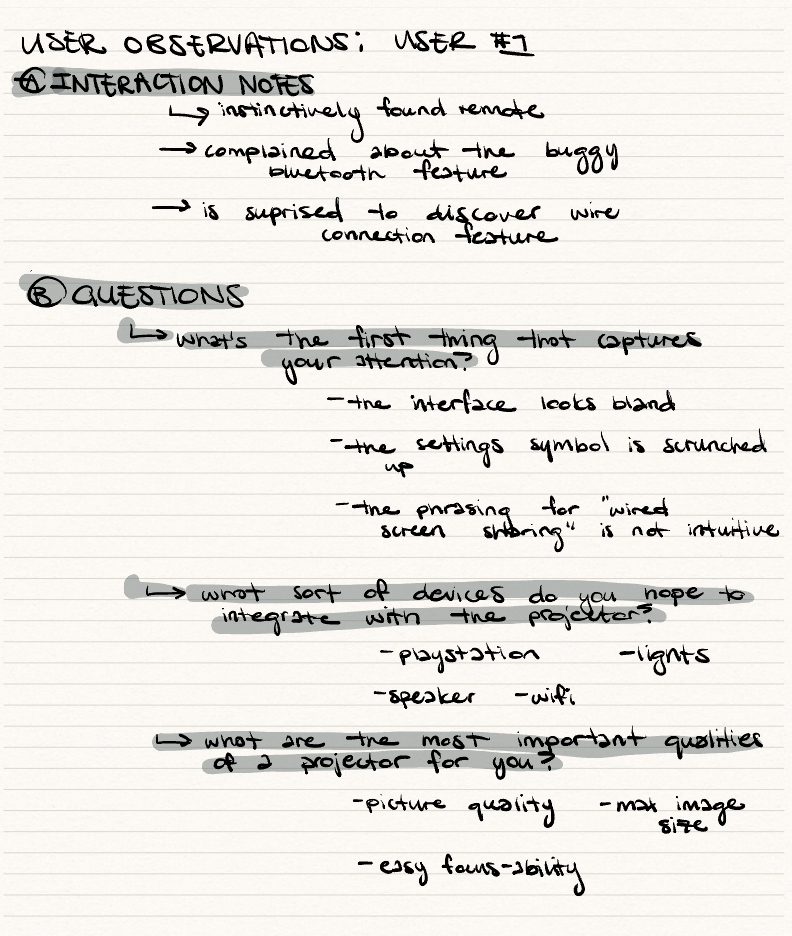 USER OBSERVATIONS: USER #1
Ⓐ INTERACTION NOTES
↳ instinctively found remote
→ complained about the buggy
bluetooth feature
→ is suprised to discover wire
connection feature
Ⓑ QUESTIONS
↳ what's the first thing that captures
your attention?
- the interface looks bland
- the settings symbol is scrunched
up
- the phrasing for "wired
screen sharing" is not intuitive
↳ what sort of devices do you hope to
integrate with the projector?
- playstation - lights
- speaker - wifi
↳ what are the most important qualities
of a projector for you?
- picture quality - max image
size
- easy focus-ability